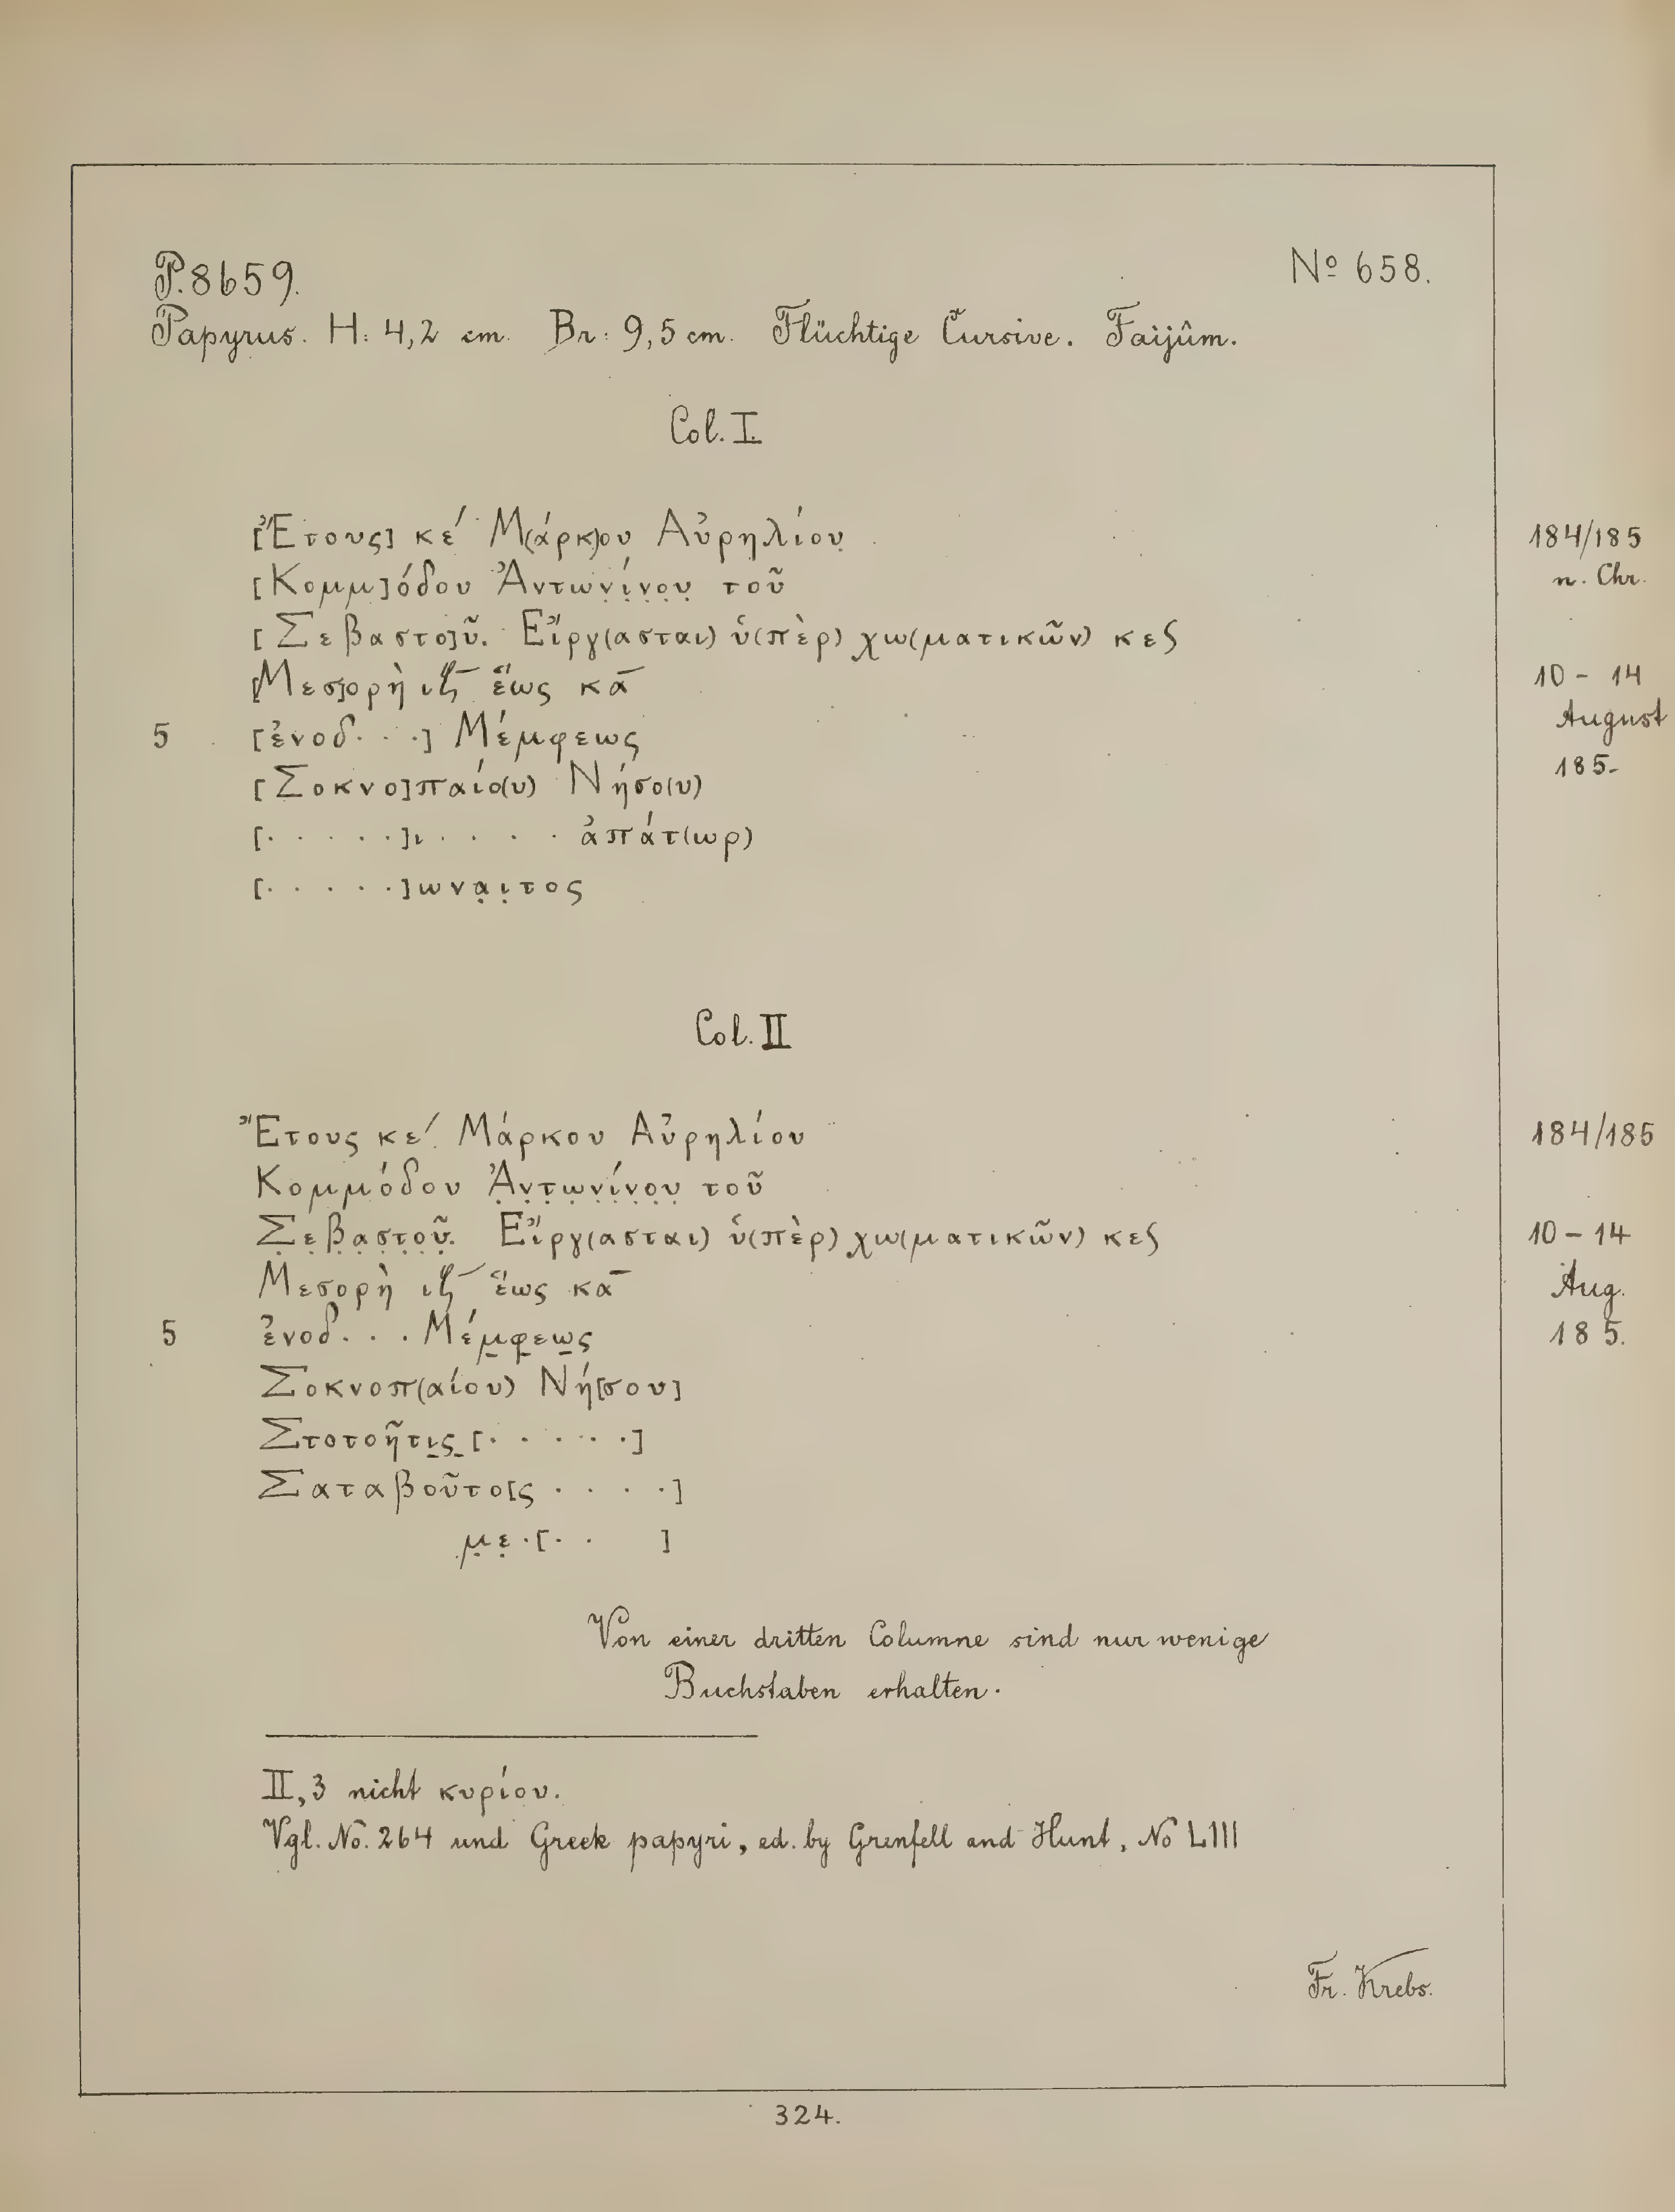 P. 8659.
No 658.
Papyrus. H: 4,2 cm. Br: 9,5 cm. Flüchtige Cursive. Faijûm.
Col. I.
[Ἔτους] κε′ Μ(άρκ)ου Αὐρηλίου
184/185
[Κομμ]όδου Ἀντων̣ί̣ν̣ο̣υ̣ τοῦ
n. Chr.
[Σεβαστο]ῦ. Εἴργ(ασται) ὑ(πὲρ) χω(ματικῶν) κες
[Μεσ]ορὴ ιζ̅ ἕως κα̅
10 - 14
August
5 [ἐνοδ· · ·] Μέμφεως
185.
[Σοκνο]παίο(υ) Νήσο(υ)
[· · · · ·]ι · · · · ἀπάτ(ωρ)
[· · · · ·]ωνα̣ι̣τος
Col. II
Ἔτους κε′ Μάρκου Αὐρηλίου
184/185
Κομμόδου Ἀ̣ν̣τ̣ω̣ν̣ί̣ν̣ο̣υ̣ τοῦ
Σ̣ε̣β̣α̣σ̣τ̣ο̣ῦ̣. Εἴργ(ασται) ὑ(πὲρ) χω(ματικῶν) κες
10 - 14
Μεσορὴ ιζ̅ ἕως κα̅
Aug.
5 ἐνοδ· · · Μέμ̣φ̣εω̣ς
185.
Σοκνοπ(αίου) Νή[σου]
Στοτοῆτι̣ς̣ [· · · · ·]
Σαταβοῦτο[ς · · · ·]
μ̣ε̣ ·[· · ]
Von einer dritten Columne sind nur wenige
Buchstaben erhalten.
II,3 nicht κυρίου.
Vgl. No. 264 und Greek papyri, ed. by Grenfell and Hunt, No LIII
Fr. Krebs.
324.